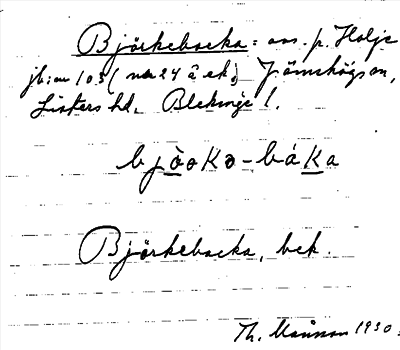 Björkebacka: avs. p. Holje
jb: nr 103 (nr 24 å ek.) Jämshögs sn,
Listers hd. Blekinge l.
bjò̲ɵKə-báK̲a
Björkebacka, bek.
Th. 1930.